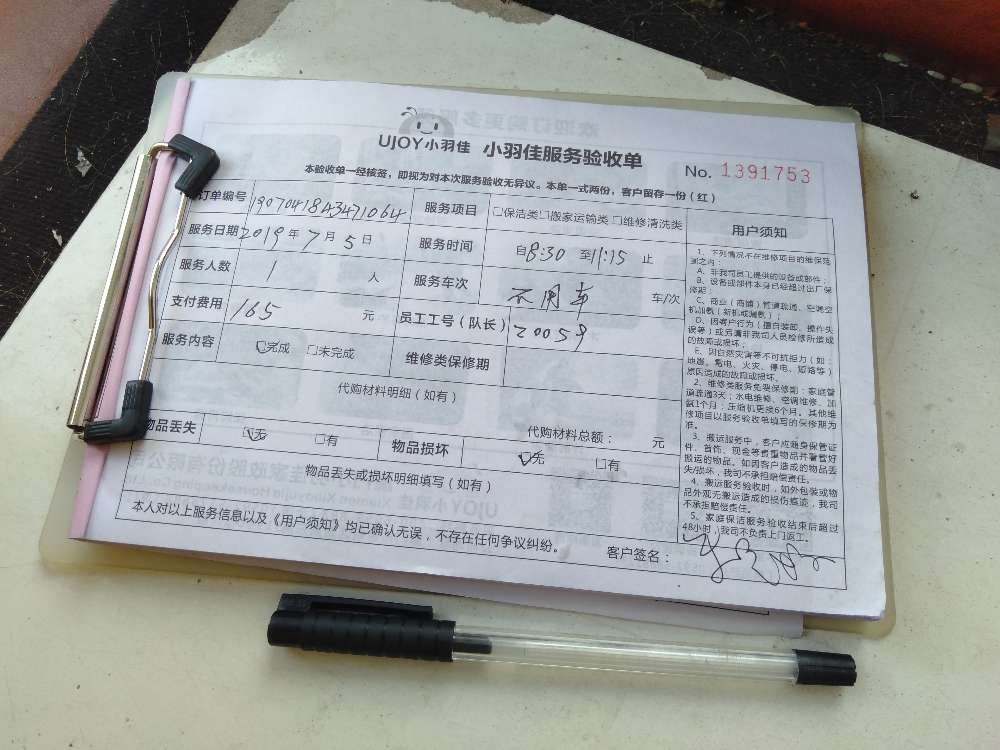 UJOY小羽佳 小羽佳服务验收单
No. 1391753
本验收单一经核签，即视为对本次服务验收无异议。本单一式两份，客户留存一份（红）
订单编号 190704184347 1064 服务项目 □保洁类□搬家运输类□维修清洗类
服务日期 2019年7月5日 服务时间 自8:30 至11:15 止
服务人数 1 人 服务车次 不用车 车/次
支付费用 165 元 员工工号（队长） 20059
服务内容 ☑完成 □未完成 维修类保修期
代购材料明细（如有）
代购材料总额： 元
物品丢失 ☑无 □有 物品损坏 ☑无 □有
物品丢失或损坏明细填写（如有）
本人对以上服务信息以及《用户须知》均已确认无误，不存在任何争议纠纷。
客户签名：
用户须知
1、下列情况不在维修项目的维保范
围之内：
A、非我司员工提供的设备或部件；
B、设备或部件本身已经超过出厂保
修期；
C、商业（商铺）管道疏通、空调空
机加氨（新机或漏氨）；
D、因客户行为（擅自装卸、操作失
误等）或另请非我司人员检修所造成
的故障或损坏；
E、因自然灾害等不可抗拒力（如：
地震、雷电、火灾、停电、短路等）
原因造成的故障或损坏。
2、维修类服务免费保修期：家庭管
道疏通3天；水电维修、空调维修、加
氨1个月；压缩机更换6个月。其他维
修项目以服务验收单填写的保修期为
准。
3、搬运服务中，客户应随身保管证
件、首饰、现金等贵重物品并看管好
搬运的物品。如因客户造成的物品丢
失/损坏，我司不承担赔偿责任。
4、搬运服务验收时，如外包装或物
品外观无搬运造成的损伤痕迹，我司
不承担赔偿责任。
5、家庭保洁服务验收结束后超过
48小时，我司不负责上门返工。